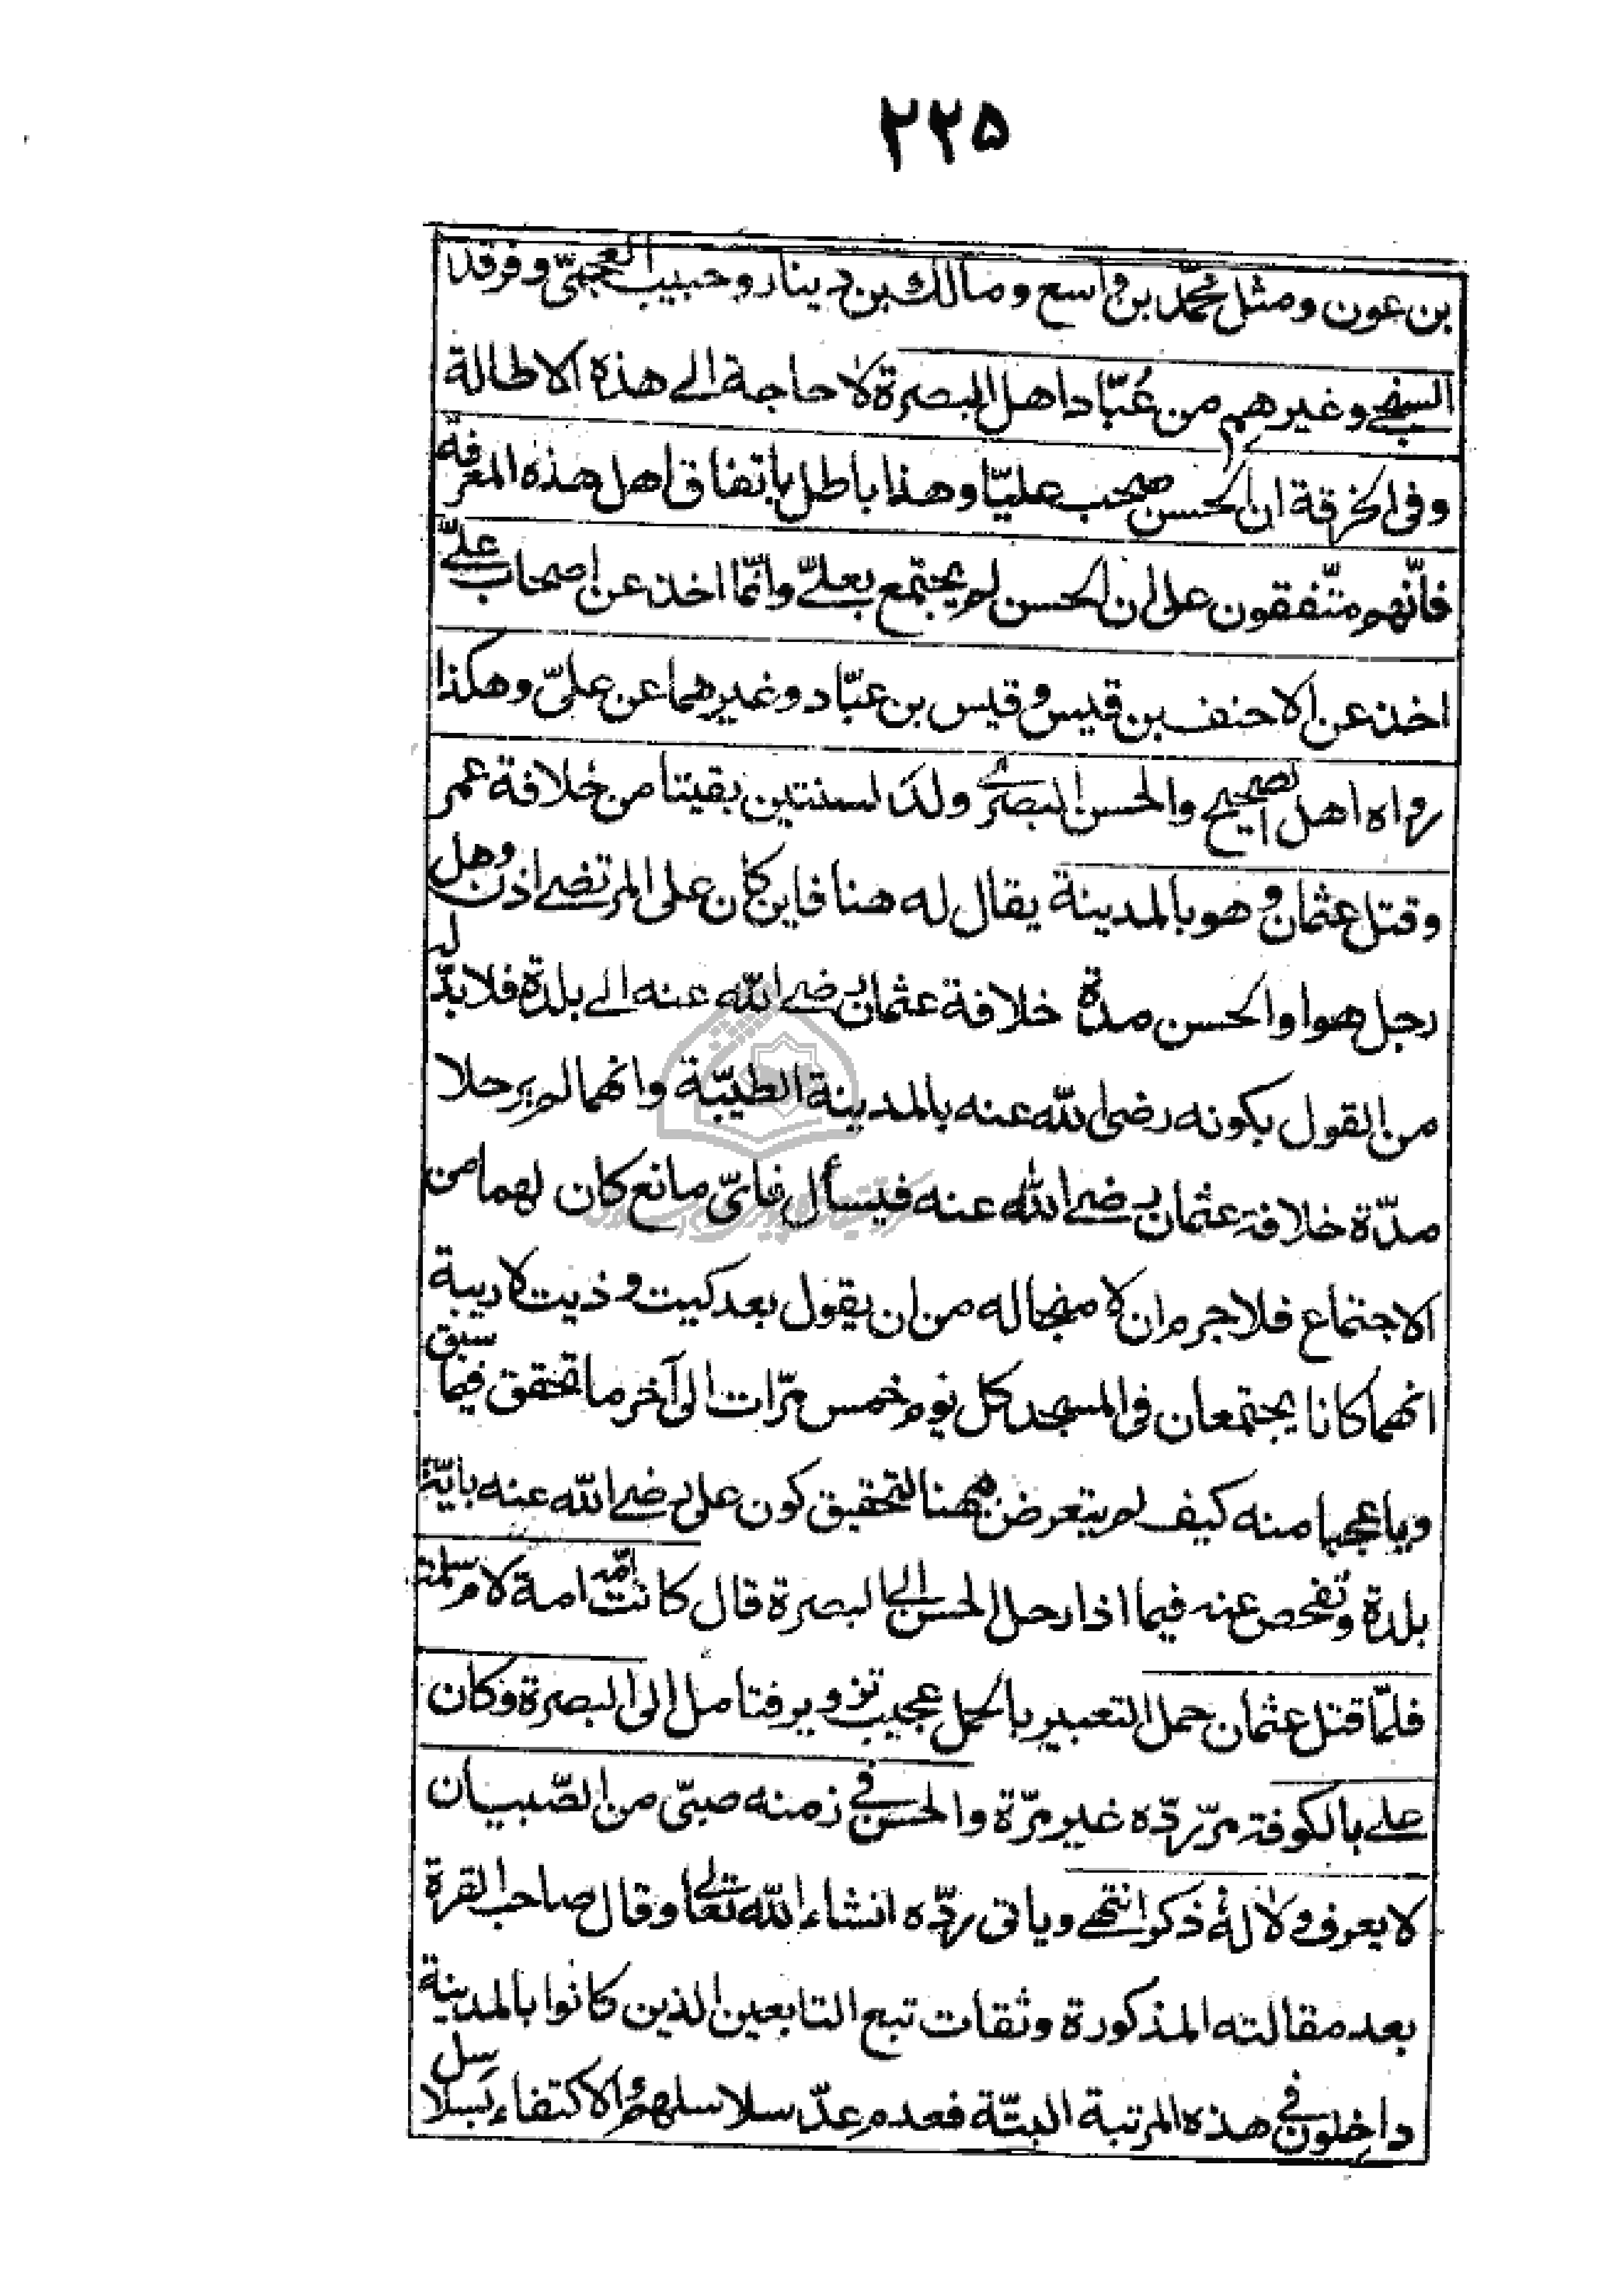 ٢٢۵
بن عون ومثل محمّد بن واسع ومالك بن دينار وحبيب العجمىّ وفرقد
السنجے وغيرهم من عُبّاد اهل البصرة لا حاجة الے هذه الاطالة
وفى الخرقة ان الحسن صحب عليّا وهذا باطل باتفاق اهل هذه المعرفة
فانّهم متّفقون على ان الحسن لم يجتمع بعلےّ وانّما اخذ عن اصحاب علےّ
اخذ عن الاحنف بن قيس وقيس بن عبّاد وغيرهما عن علىّ وهكذا
رواه اهل الصحيح والحسن البصرے ولد لسنتين بقيتا من خلافة عمر
وقتل عثمان وهو بالمدينة يقال له هنا فاين كان على المرتضے اذن وهل
رجل هو او الحسن مدة خلافة عثمان رضے الله عنه الے بلدة فلا بدّ له
من القول بكونه رضى الله عنه بالمدينة الطيّبة وانهما لم يرحلا
مدّة خلافة عثمان رضے الله عنه فيسأل فاىّ مانع كان لهما من
الاجتماع فلا جرم ان لا منجا له من ان يقول بعد كيت وذيت لا ريبة
انهما كانا يجتمعان فى المسجد كل يوم خمس مرّات الى آخر ما تحقق فيما سبق
ويا عجبا منه كيف لم يتعرض ههنا لتحقيق كون على رضے الله عنه بايّة
بلدة وتفحص عنه فيما اذا رحل الحسن الے البصرة قال كانت امّه امة لام سلمة
فلمّا قتل عثمان حمل التعبير بالحمل عجيب تزوير فتامل الى البصرة وكان
علے بالكوفة مرّ ردّه غير مرّة والحسن فے زمنه صبىّ من الصّبيان
لا يعرف ولا له ذكر انتهے وياتى ردّه انشاء الله تعالے وقال صاحب القرة
بعد مقالته المذكورة وثقات تبع التابعين الذين كانوا بالمدينة
داخلون فے هذه المرتبة البتّة فعدم عدّ سلاسلهم والاكتفاء بسلاسل